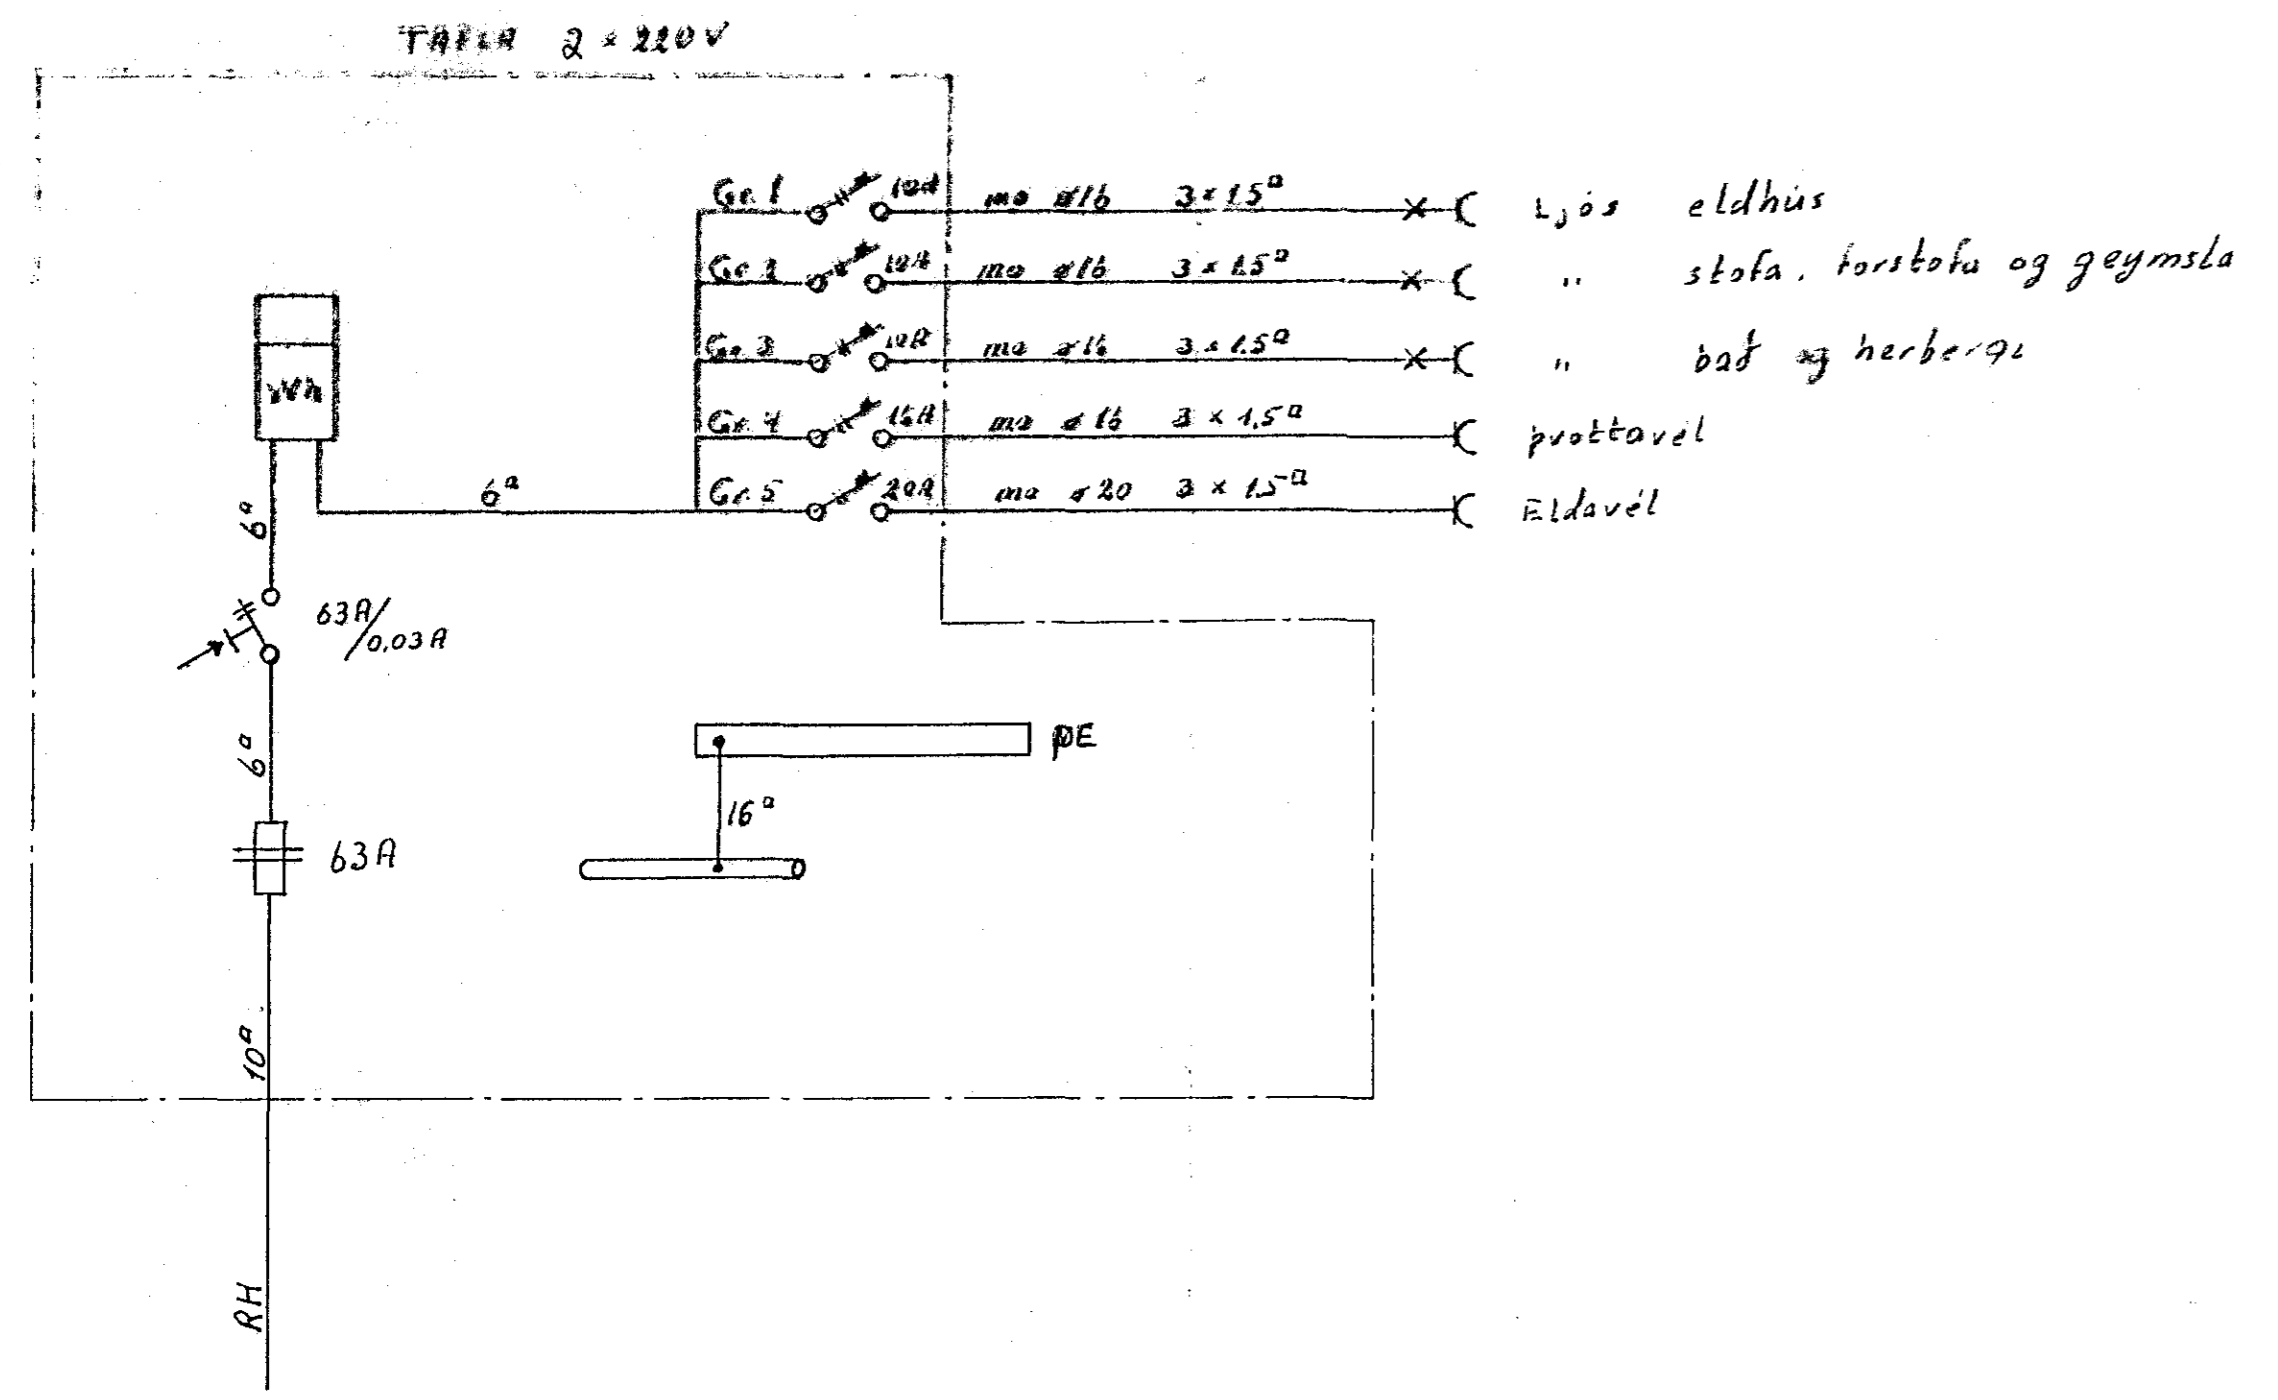 TAFLA 2 x 220V
Gr. 1 10A mo ø16 3 x 1.5▫ Ljós eldhús
Gr. 2 10A mo ø16 3 x 1.5▫ " stofa, forstofa og geymsla
Gr. 3 10A mo ø16 3 x 1.5▫ " bað og herbergi
Gr. 4 16A mo ø16 3 x 1,5▫ þvottavél
Gr. 5 20A mo ø20 3 x 1.5▫ Eldavél
Wh
6▫
6▫
63A/0.03A
6▫
PE
16▫
63A
10▫
RH